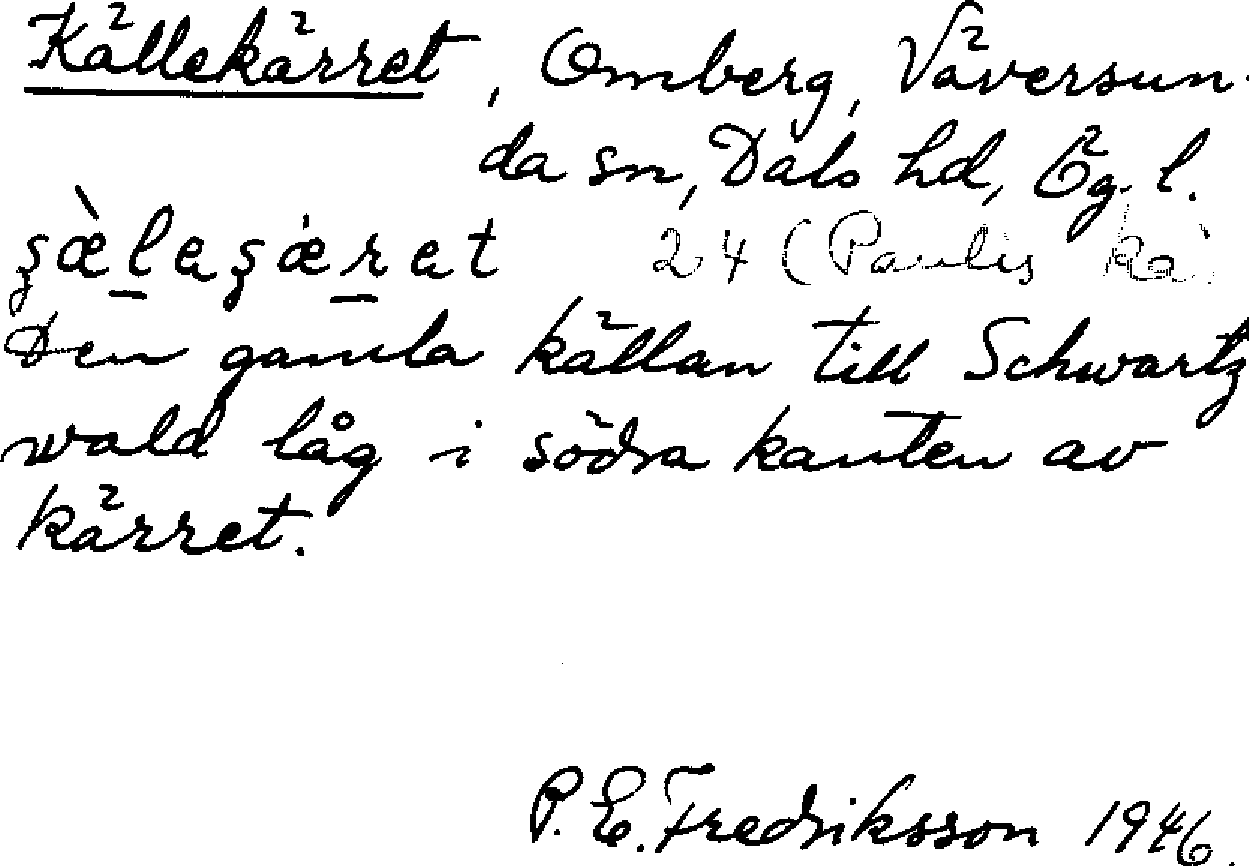 Källekärret, Omberg, Väversun-
da sn, Dals hd, Ög. l.
24 (Paulis kä
Den gamla källan till Schwartz
wald låg i södra kanten av
kärret.
P. E. Fredriksson 1946.